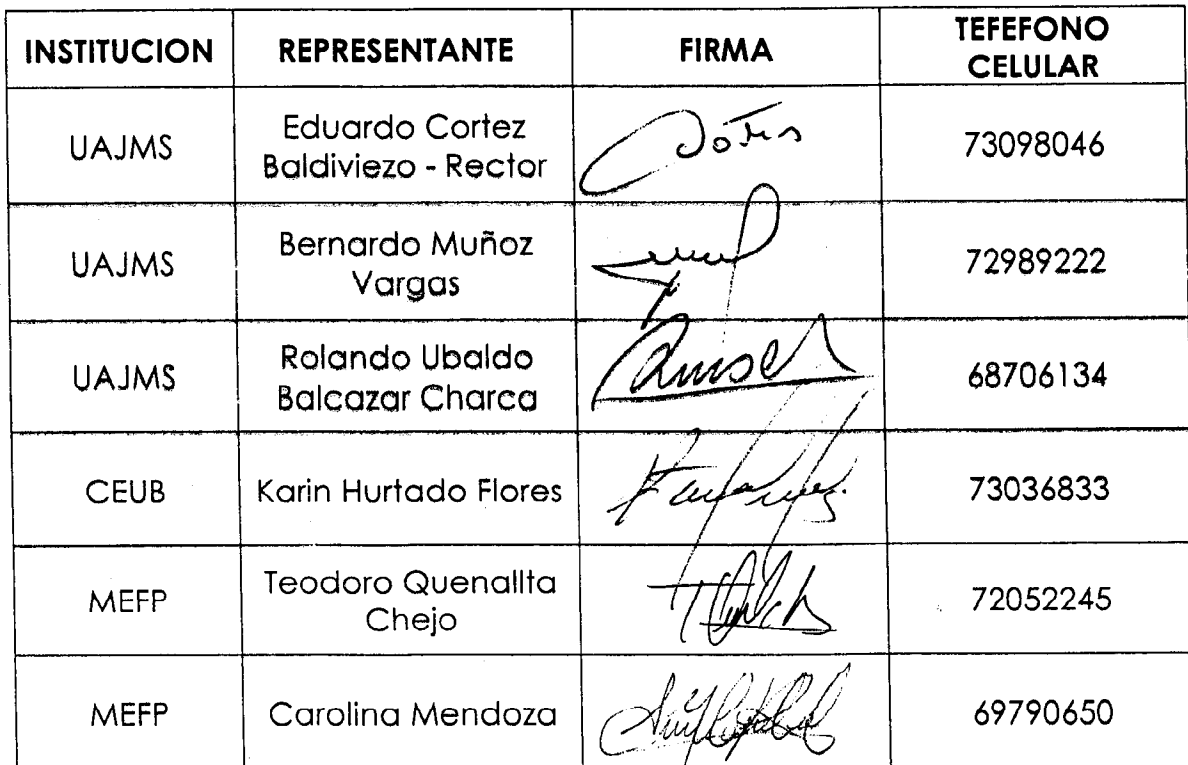 INSTITUCION REPRESENTANTE FIRMA TEFEFONO
CELULAR
UAJMS Eduardo Cortez
Baldiviezo - Rector 73098046
UAJMS Bernardo Muñoz
Vargas 72989222
UAJMS Rolando Ubaldo
Balcazar Charca 68706134
CEUB Karin Hurtado Flores 73036833
MEFP Teodoro Quenallta
Chejo 72052245
MEFP Carolina Mendoza 69790650